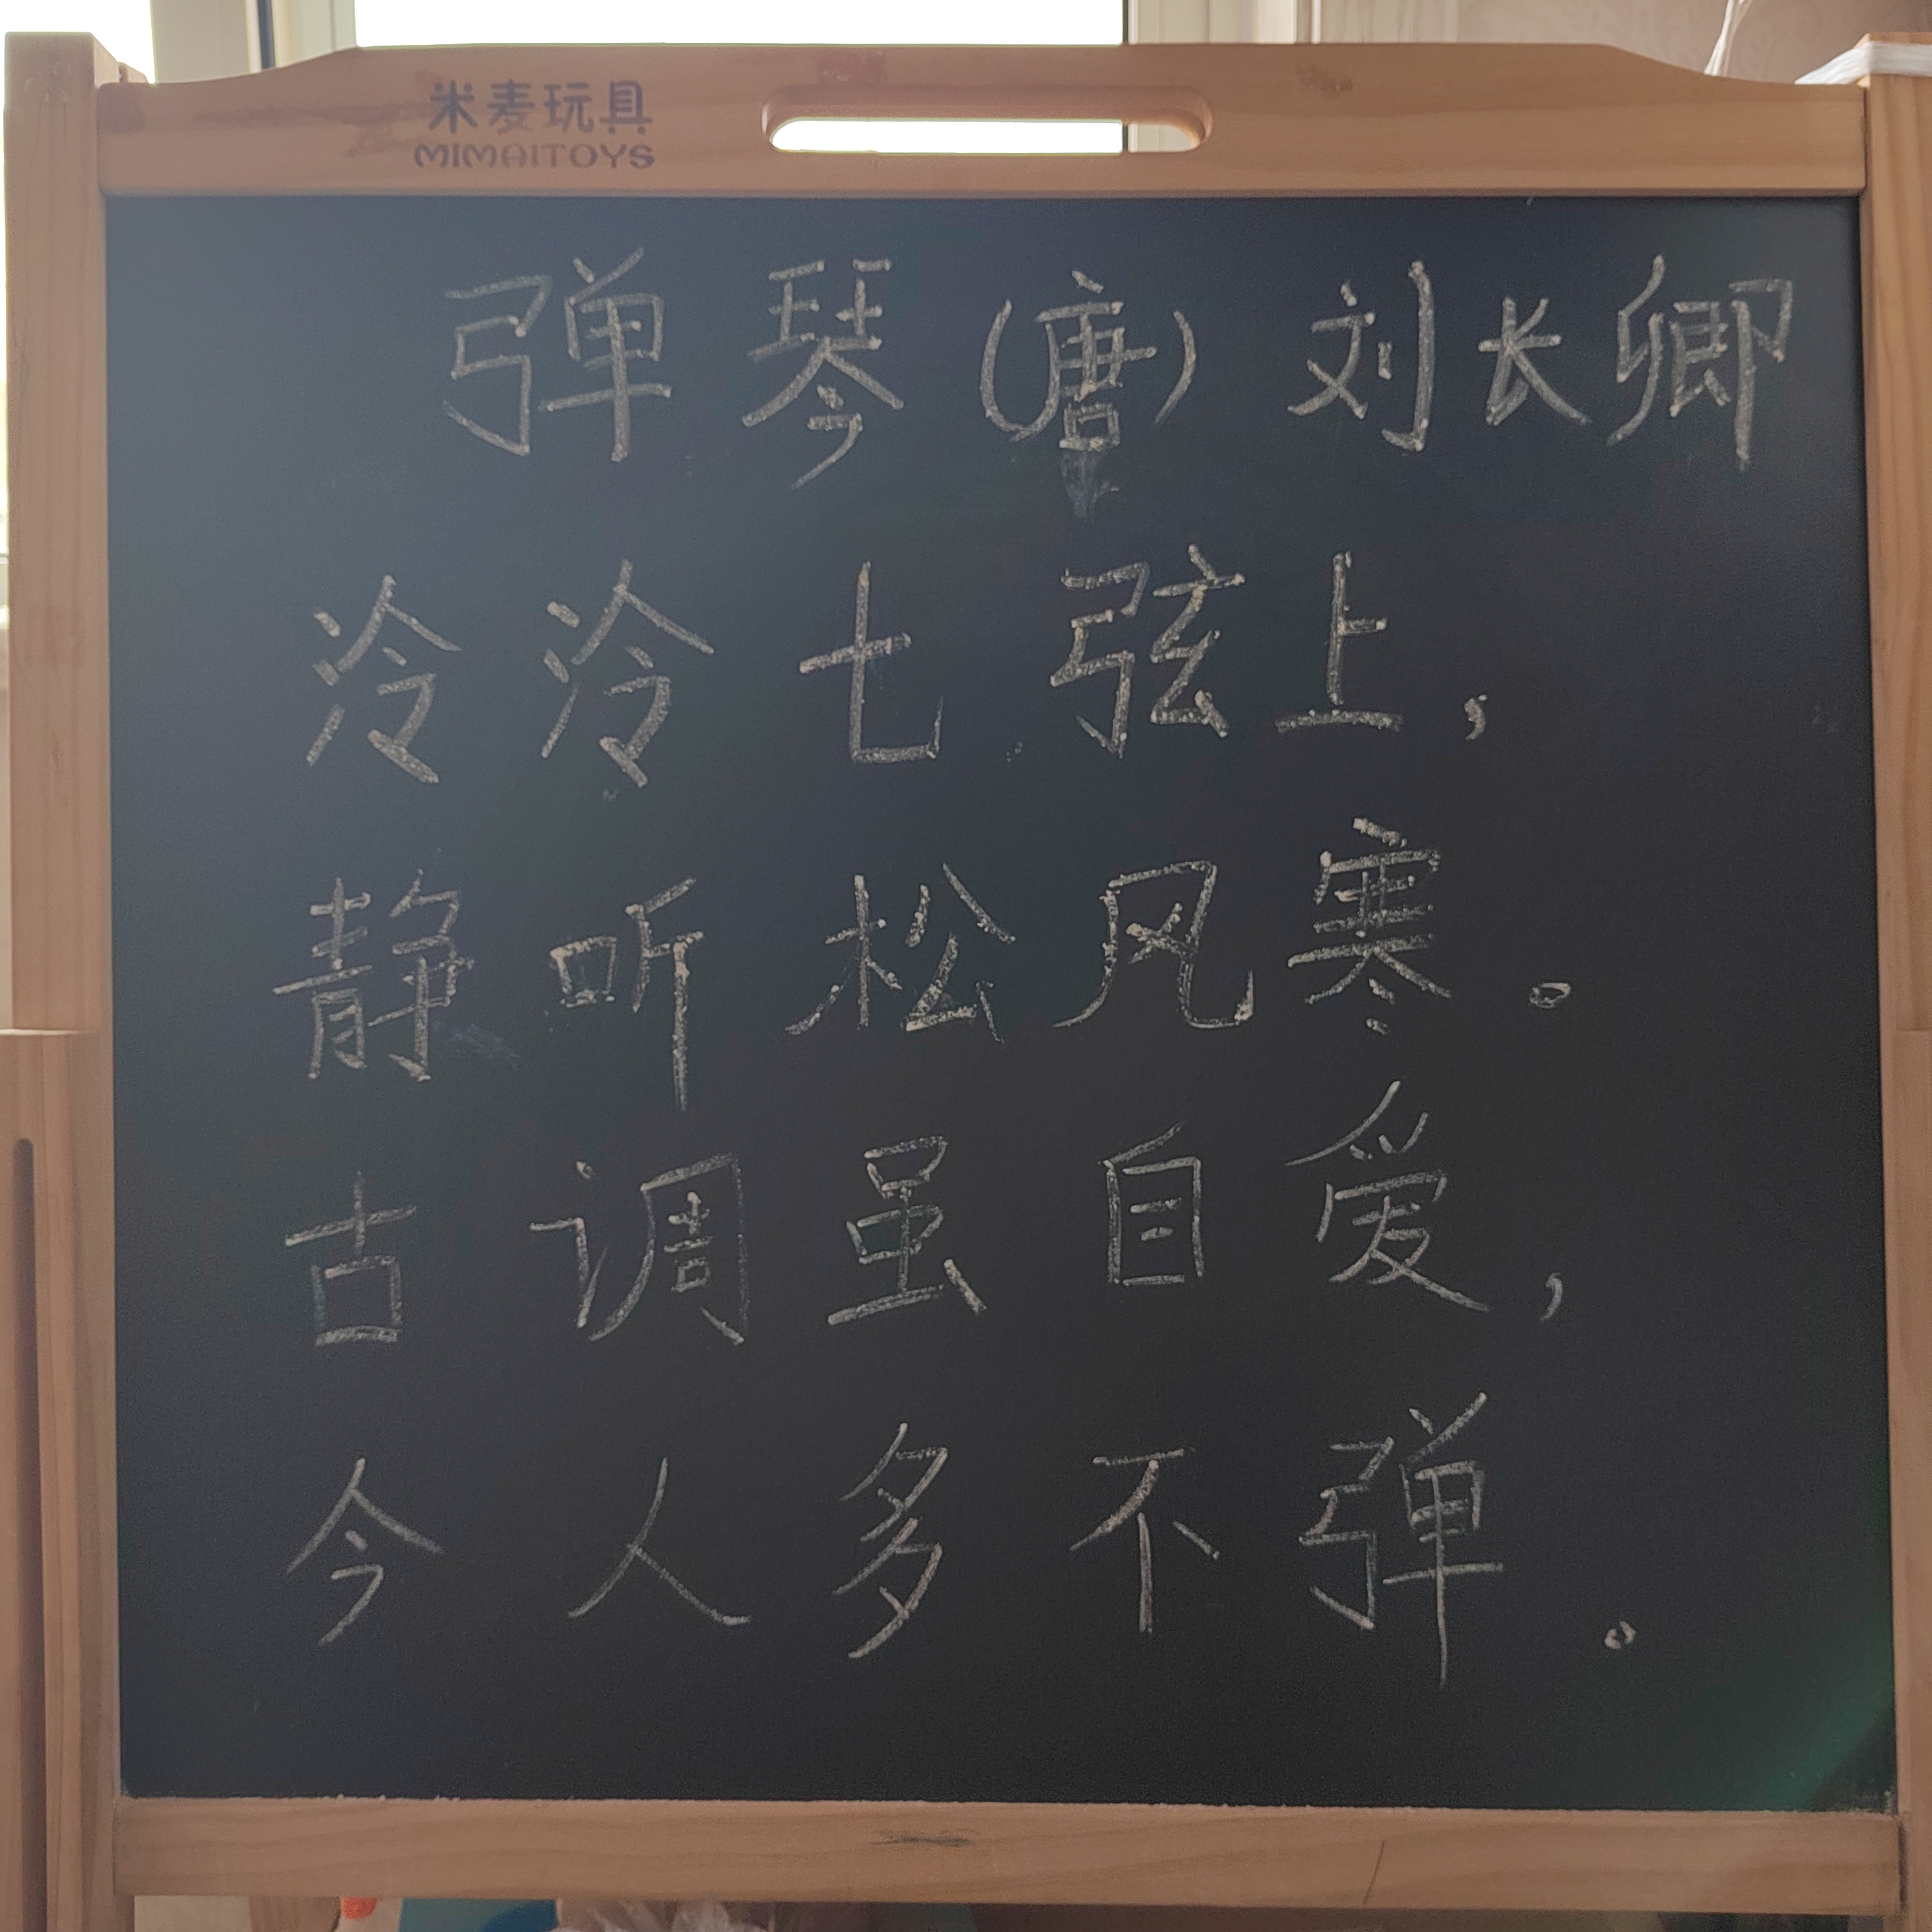 米麦玩具
MIMAITOYS
弹琴(唐)刘长卿
泠泠七弦上,
静听松风寒。
古调虽自爱,
今人多不弹。